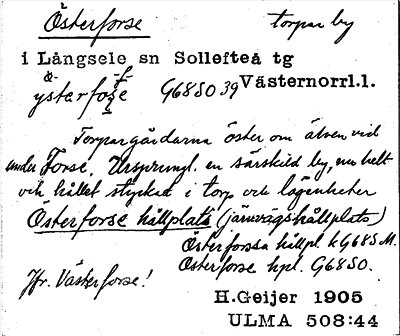 Österforse torpar by
i Långsele sn Sollefteå tg
ysterfose G68SO 39 Västernorrl.l.
Torpargårdarna öster om älven vid
under Forse. Ursprungl. en särskild by, nu helt
och hållet styckad i torp och lägenheter
Österforse hållplats (järnvägshållplats)
Österforsen hållpl. kG68SM.
Österforse hpl. G68SO.
Jfr. Västerforse!
H.Geijer 1905
ULMA 508:44